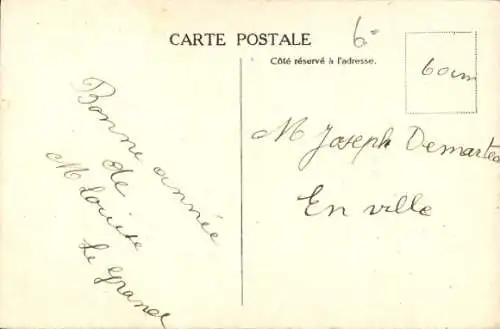 CARTE POSTALE
6
Côté réservé à l'adresse.
60 cm
Bonne année
de
M Louise
Le Grand
M Joseph Demarteau
En ville